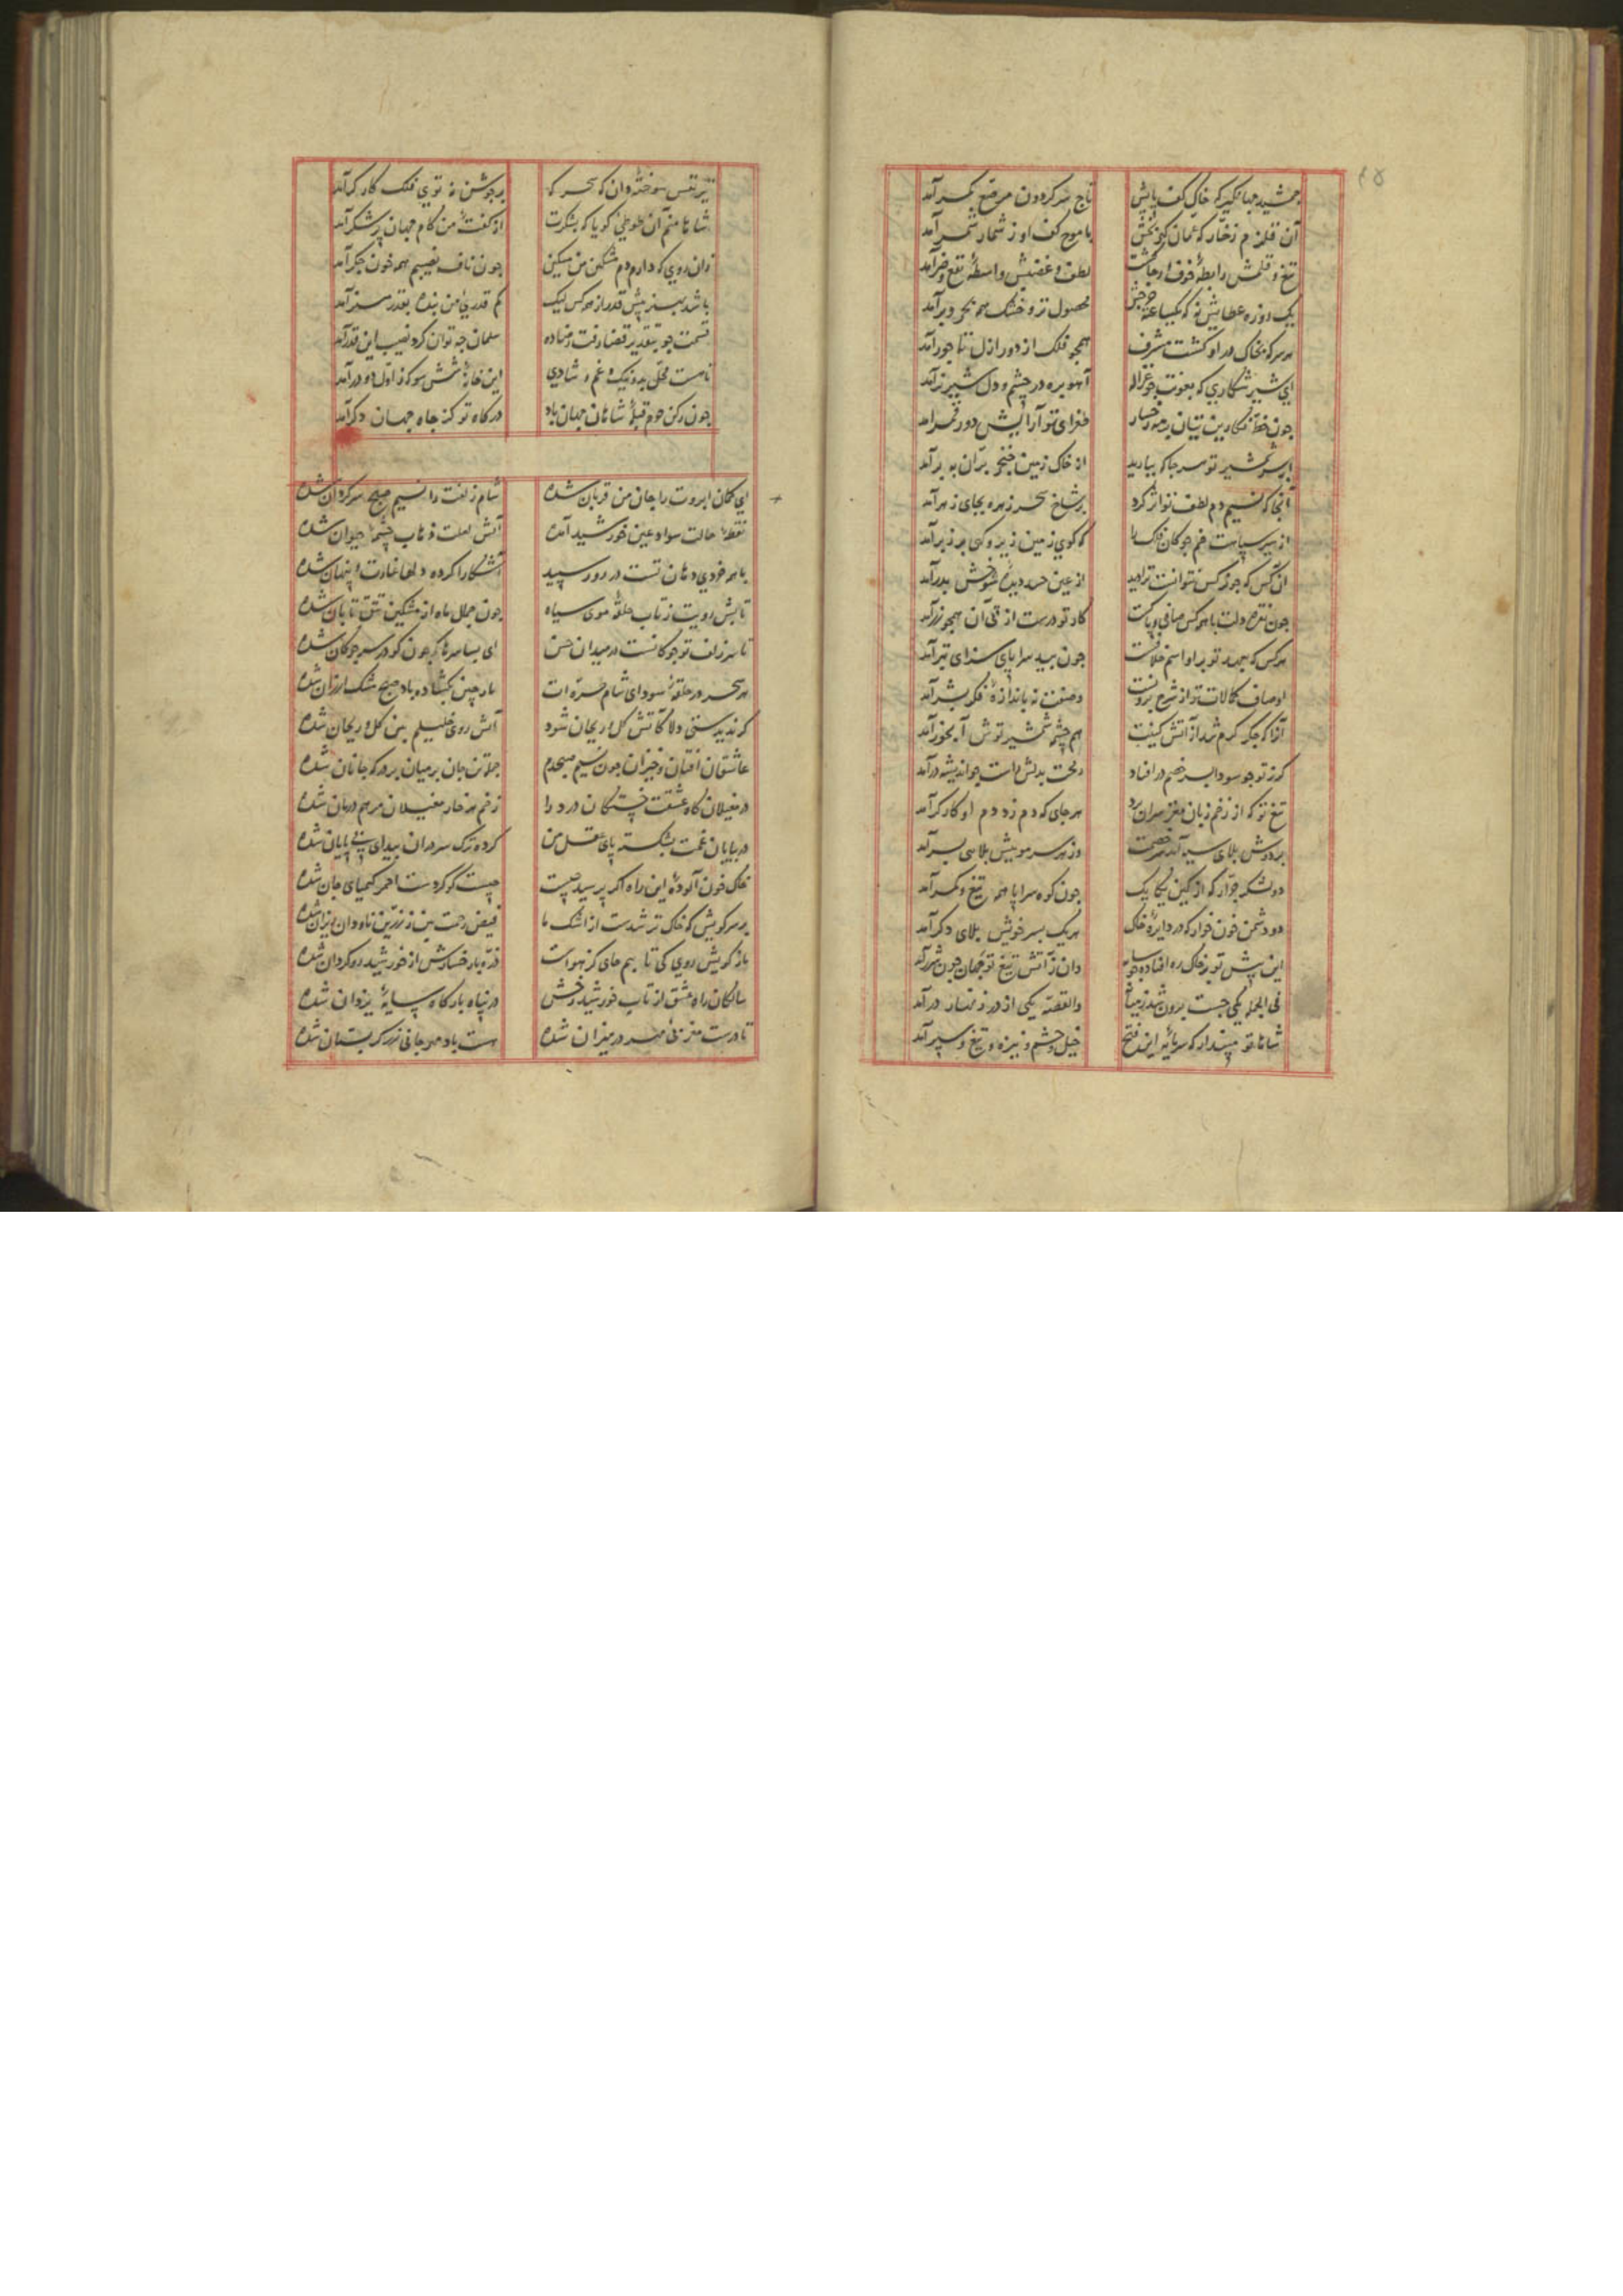 ٤٥
جمشید جهانگیر که خاک کف پایش تاج سر گردون مرصع بکمر آمد
آن قلزم زخار که عمان کف او ز شمار شمر آمد
تیغ و قلمش رابطه خوف و رجا گشت لطف و غضبش واسطه نفع و ضرر آمد
یک روزه عطایش نه که محصول تر و خشک همه بحر و بر آمد
هر سر که بخاک در او گشت مشرف همچو فلک از دور ازل تاجور آمد
ای شیر شکاری که آهو بره در چشم و دل شیر نر آمد
چون خط نگارین بتان بر طغرای تو آرایش دور قمر آمد
هر جا که ببارید از خاک زمین خنجر بران به بر آمد
آنجا که نسیم دم لطف تو اثر کرد بر شاخ سحر زهره بجای زهر آمد
از بهر سیاست خم چوکان که کوی زمین زیر و کهی بر زبر آمد
آن کس که چو نرگس نتوانست ترا دید از عین حسد دیده شوخش بدر آمد
چون نقره دلت با همه کس صافی و پاکست کار تو درست از پی آن همچو زر آمد
هر کس که چون بید سراپای سزای تبر آمد
اوصاف کمالات تو از شرح برونست وصفت نه باندازه فکر بشر آمد
آنرا که جکر کرم شد از آتش کینت هم چشمه شمشیر توش آبخور آمد
کرز تو چو سودا بسر خصم در افتاد رمحت بدلش راست چو اندیشه در آمد
تیغ تو که از زخم زبان مغز سران برد هر جای که دم زد دم او کارکر آمد
بر دوش بلای سیه آمد سر خصمت وز هر سر مویش بلایی بسر آمد
دو لشکر جرار که از کین یکایک چون کوه سراپا همه تیغ و کمر آمد
دو دشمن خون خوار که در دایره خاک هر یک بسر خویش بلای دکر آمد
این پیش تو بر خاک ره افتاده چو سایه وان ز آتش تیغ تو جهان چون شرر آمد
فی الجمله یکی جست برون شد ز میانه والقصه یکی از در زنهار در آمد
شاها تو مپندار که سرمایه این فتح خیل و حشم و نیزه و تیغ و سپر آمد
تیر نفس سوخته دان که سحر که بر جوشن نه توی فلک کارکر آمد
شاها منم آن طوطی کویا که بشکرت از گفته من کام جهان پر شکر آمد
زان روی که دارم دم مشکین من مسکین چون ناف نصیبم همه خون جکر آمد
باشد هنرم بیش قدر از همه کس لیک کم قدری من بنده بقدر هنر آمد
قسمت چو بتقدیر قضا رفت و رضا ده سلمان چه توان کرد نصیب این قدر آمد
تا هست محل بد و نیک و غم و شادی این خانه شش سو که ز اول دو در آمد
چون رکن حرم قبله شاهان جهان باد درکاه تو کز جاه جهان دکر آمد
ای کمان ابروت را جان من قربان شده شام زلفت را نسیم صبح سرکردان شده
نقطه خالت سواد عین خورشید آمده آتش لعلت ذهاب چشمه حیوان شده
با همه خردی دهان تست در روز سپید آشکارا کرده دلها غارت و پنهان شده
تابش رویت ز تاب حلقه موی سیاه چون جمال ماه از مشکین تتق تابان شده
تا سر زلف تو چوکانست در میدان حسن ای بسا سرها که چون کو در سر چوکان شده
هر سحر در حلقه سودای شام طره ات بار چین بکشاده باد صبح مشک ارزان شده
کر ندیدستی دلا کاتش کل و ریحان شود آتش روی خلیلم بین کل و ریحان شده
عاشقان افتان و خیزان چون نسیم صبحدم جمله تن جان بر میان بر درکه جانان شده
در مغیلان کاه عشقت خستکان درد را زخم هر خار مغیلان مرهم درمان شده
در بیابان غمت بشکسته پای عقل من کرده ترک سر در آن بیدای بی پایان شده
خاک خون آلوده این راه اکر پرسید چیست چیست کوکردست احمر کیمیای جان شده
بر سر کویش که خاک تر شدست از اشک ما فیض رحمت بین ز زرین ناودان ریزان شده
باز کویش روی کی تابیم جای کز هواست ذره با رخسارش از خورشید روکردان شده
سالکان راه عشق از تاب خورشید رخش در پناه بارکاه سایه یزدان شده
تا درست مغربی مهر در میزان شده هست باد مهرجانی زرکر بستان شده